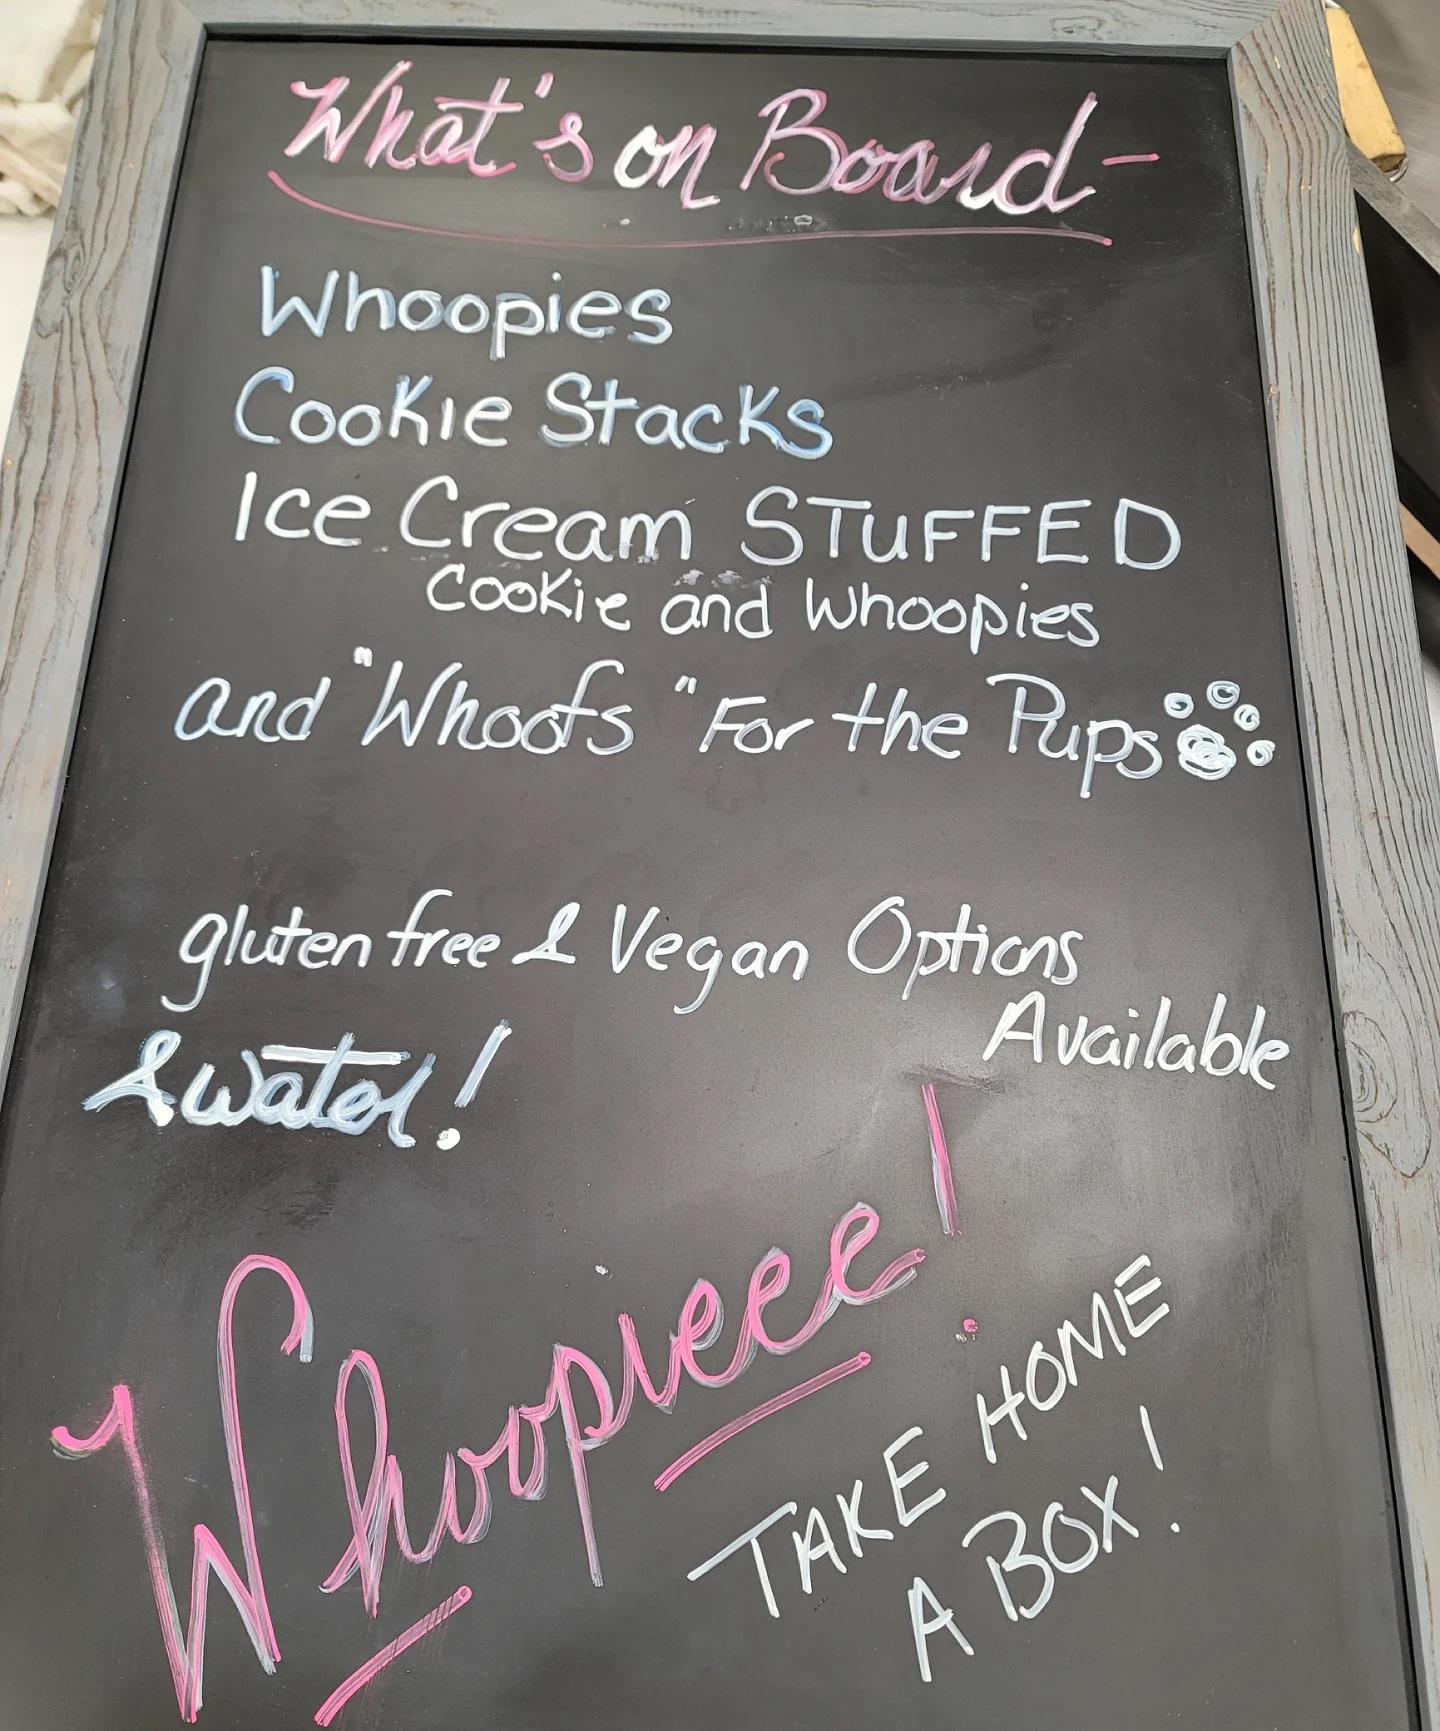 What's on Board-
Whoopies
Cookie Stacks
Ice Cream STUFFED
Cookie and Whoopies
and "Whoofs" For the Pups
gluten free & Vegan Options
Available
& water!
Whoopieee!
TAKE HOME
A BOX!